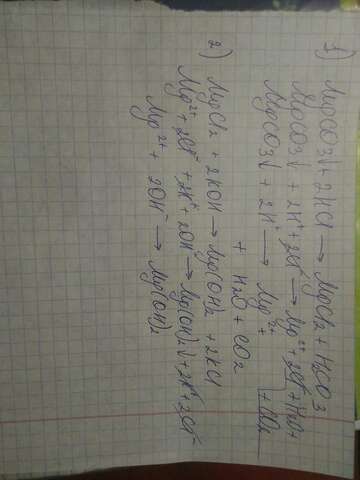 1) MgCO3↓+2HCl → MgCl2 + H2CO3
MgCO3↓ + 2H⁺+2Cl⁻ → Mg²⁺+2Cl⁻+H2O+
MgCO3↓ + 2H⁺ → Mg²⁺ + +CO2
+ H2O + CO2
2) MgCl2 + 2KOH → Mg(OH)2 + 2KCl
Mg²⁺+2Cl⁻ + 2K⁺+2OH⁻ → Mg(OH)2↓+2K⁺+2Cl⁻
Mg²⁺ + 2OH⁻ → Mg(OH)2